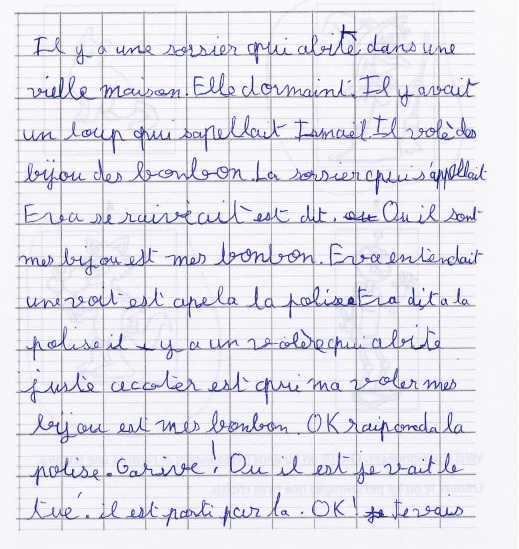 Il y a une sorsier qui abite dans une
vielle maison. Elle dormaint. Il y avait
un loup qui sapellait Ismaël. Il volè des
bijou des bonbon. La sorsier qui s'appellait
Eva se raiveait est dit. Ou il sont
mes bijou est mes bonbon. Eva entendait
une voit est apela la polise. Eva dit a la
polise il y a un volère qui abite
juste accoter est qui ma voler mes
bijou est mes bonbon. OK raiponda la
polise. Garive! Ou il est je vait le
tué. il est parti par la. OK! Je vais